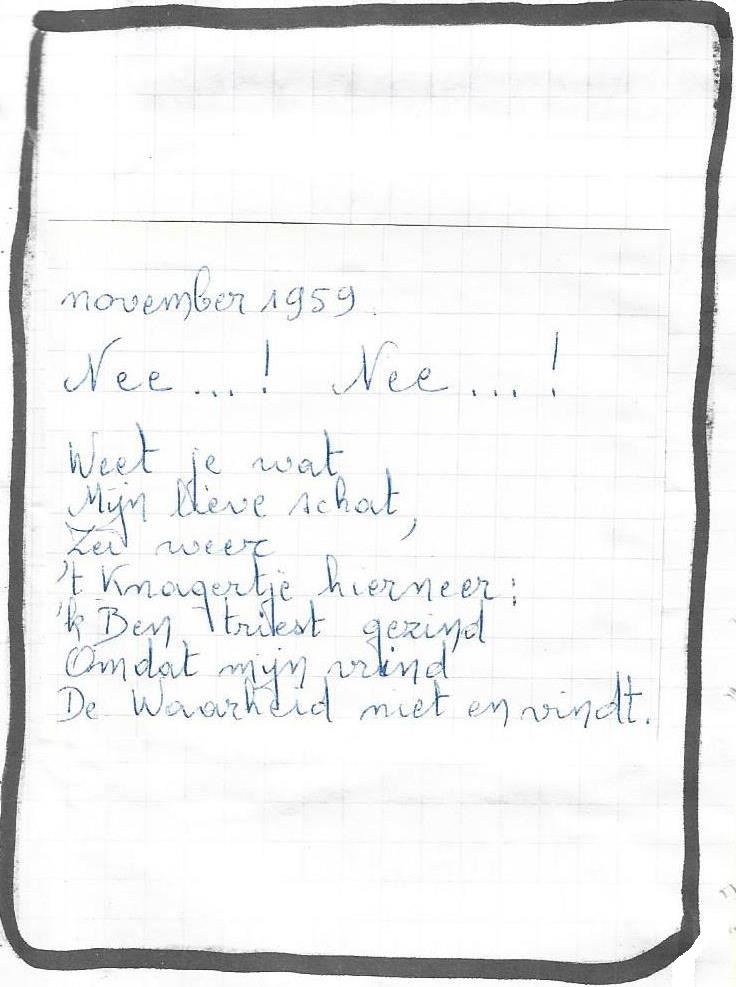 november 1959.
Nee ...! Nee ...!
Weet je wat
Mijn lieve schat,
Zei weer
't Knagertje hierneer:
'k Ben triest gezind
Omdat mijn vrind
De Waarheid niet en vindt.